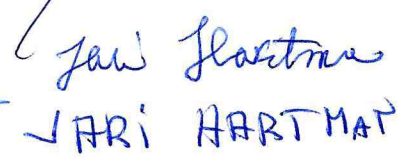 Jari Hartman
JARi HARTMAN